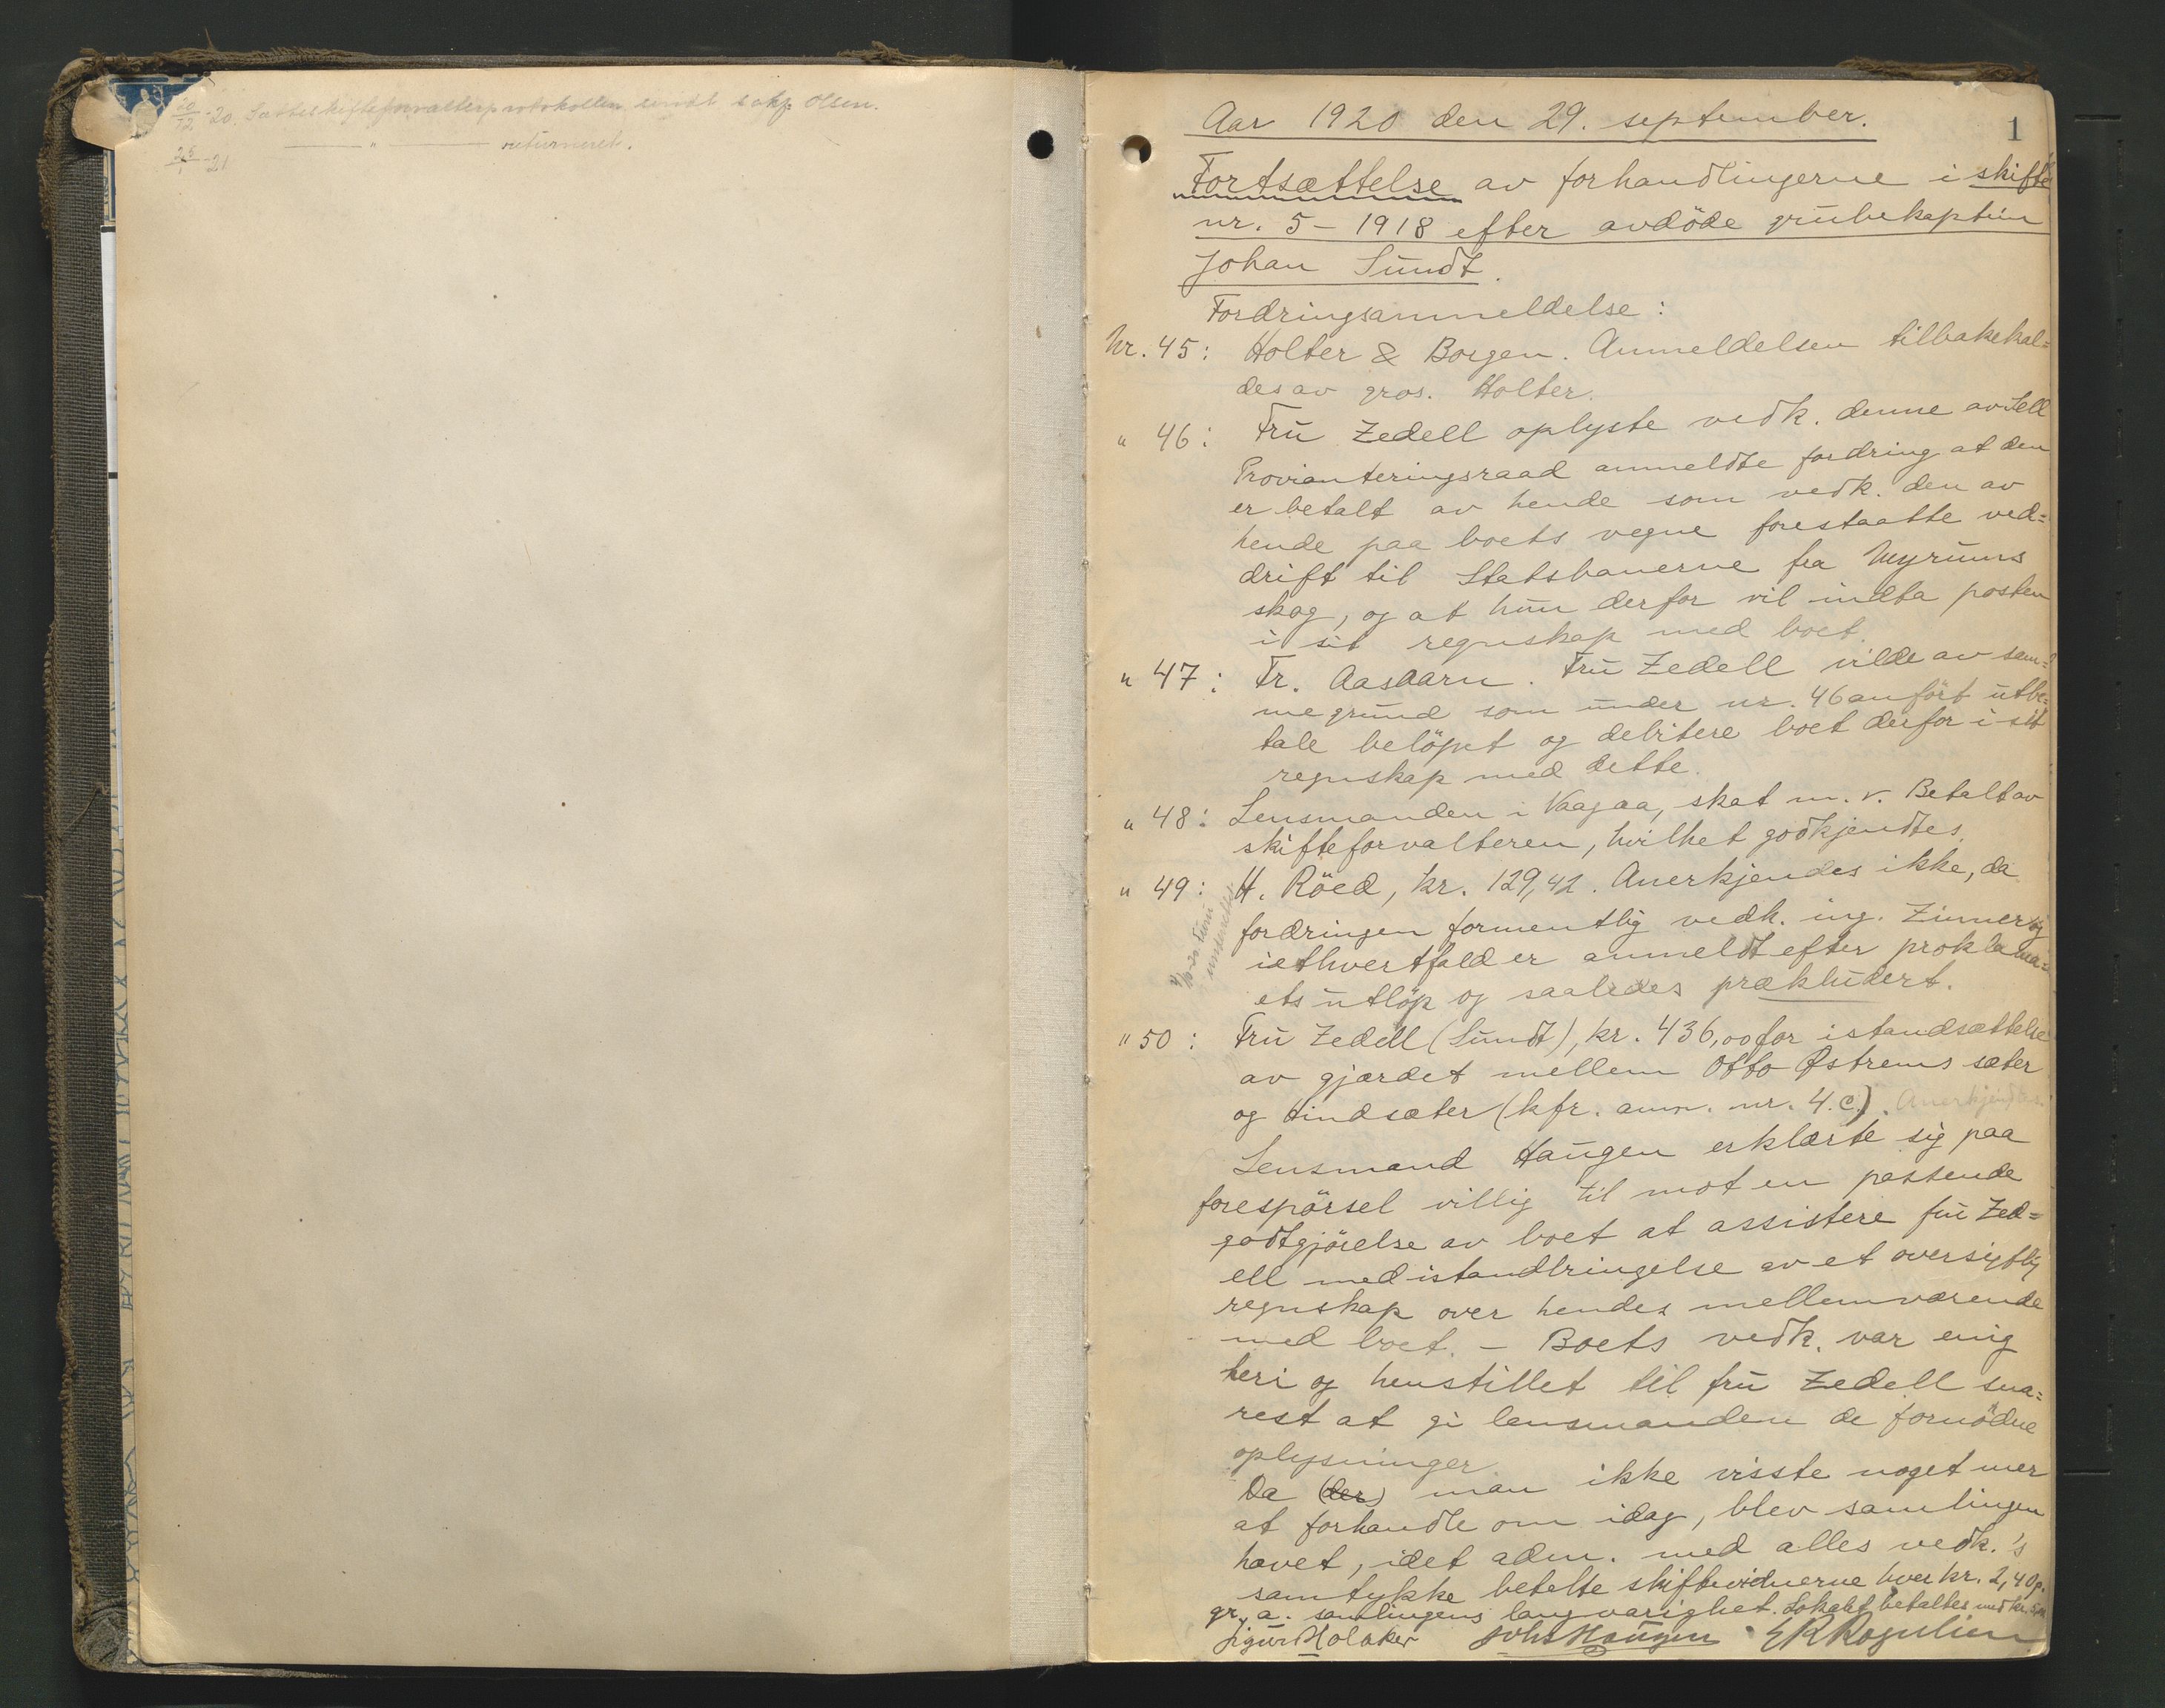 20/12-20. Sætteskifteforvalterprotokollen sendt sakf. Olsen.
25/1-21 — " — returneret.
1
Aar 1920 den 29. september.
Fortsættelse av forhandlingerne i skifte
nr. 5 - 1918 efter avdöde grubekaptein
Johan Sundt.
Fordringsanmeldelse:
Nr. 45: Holter & Borgen. Anmeldelsen tilbakekal=
des av gros. Holter.
" 46: Fru Zedell oplyste vedk. denne av Sell
Provianteringsraad anmeldte fordring at den
er betalt av hende som vedk. den av
hende paa boets vegne forestaatte ved=
drift til Statsbanerne fra Myrums
skog, og at hun derfor vil indta posten
i sit regnskap med boet.
" 47: Fr. Aasaarn. Fru Zedell vilde av sam=
me grund som under nr. 46 anfört utbe=
tale belöpet og debitere boet derfor i sit
regnskap med dette.
" 48: Lensmanden i Vaagaa, skat m. v. Betalt av
skifteforvalteren, hvilket godkjendtes.
" 49: H. Röed, kr. 129,42. Anerkjendes ikke, da
fordringen formentlig vedk. ing. Zinner og
iethvertfald er anmeldt efter proklama=
ets utlöp og saaledes prækludert.
underrettet
" 50: Fru Zedell (Sundt), kr. 436,00 for istandsættelse
av gjærdet mellem Otto Østrems sæter
og Hindsæter (kfr. anm. nr. 4.c.). Anerkjendtes.
Lensmand Haugen erklærte sig paa
forespörsel villig til mot en passende
godtgjörelse av boet at assistere fru Zed=
ell med istandbringelse av et oversigtlig
regnskap over hendes mellemværende
med boet. - Boets vedk. var enig
heri og henstillet til fru Zedell sna=
rest at gi lensmanden de fornödne
oplysninger.
Da (der) man ikke visste noget mer
at forhandle om idag, blev samlingen
hævet, idet adm. med alles vedk.'s
samtykke betalte skiftevidnerne hver kr. 2,40 p.
gr. a. samlingens langvarighet. Lokalet betaltes med kr.
Sigurd Holaker Johs Haugen E R Rogulien